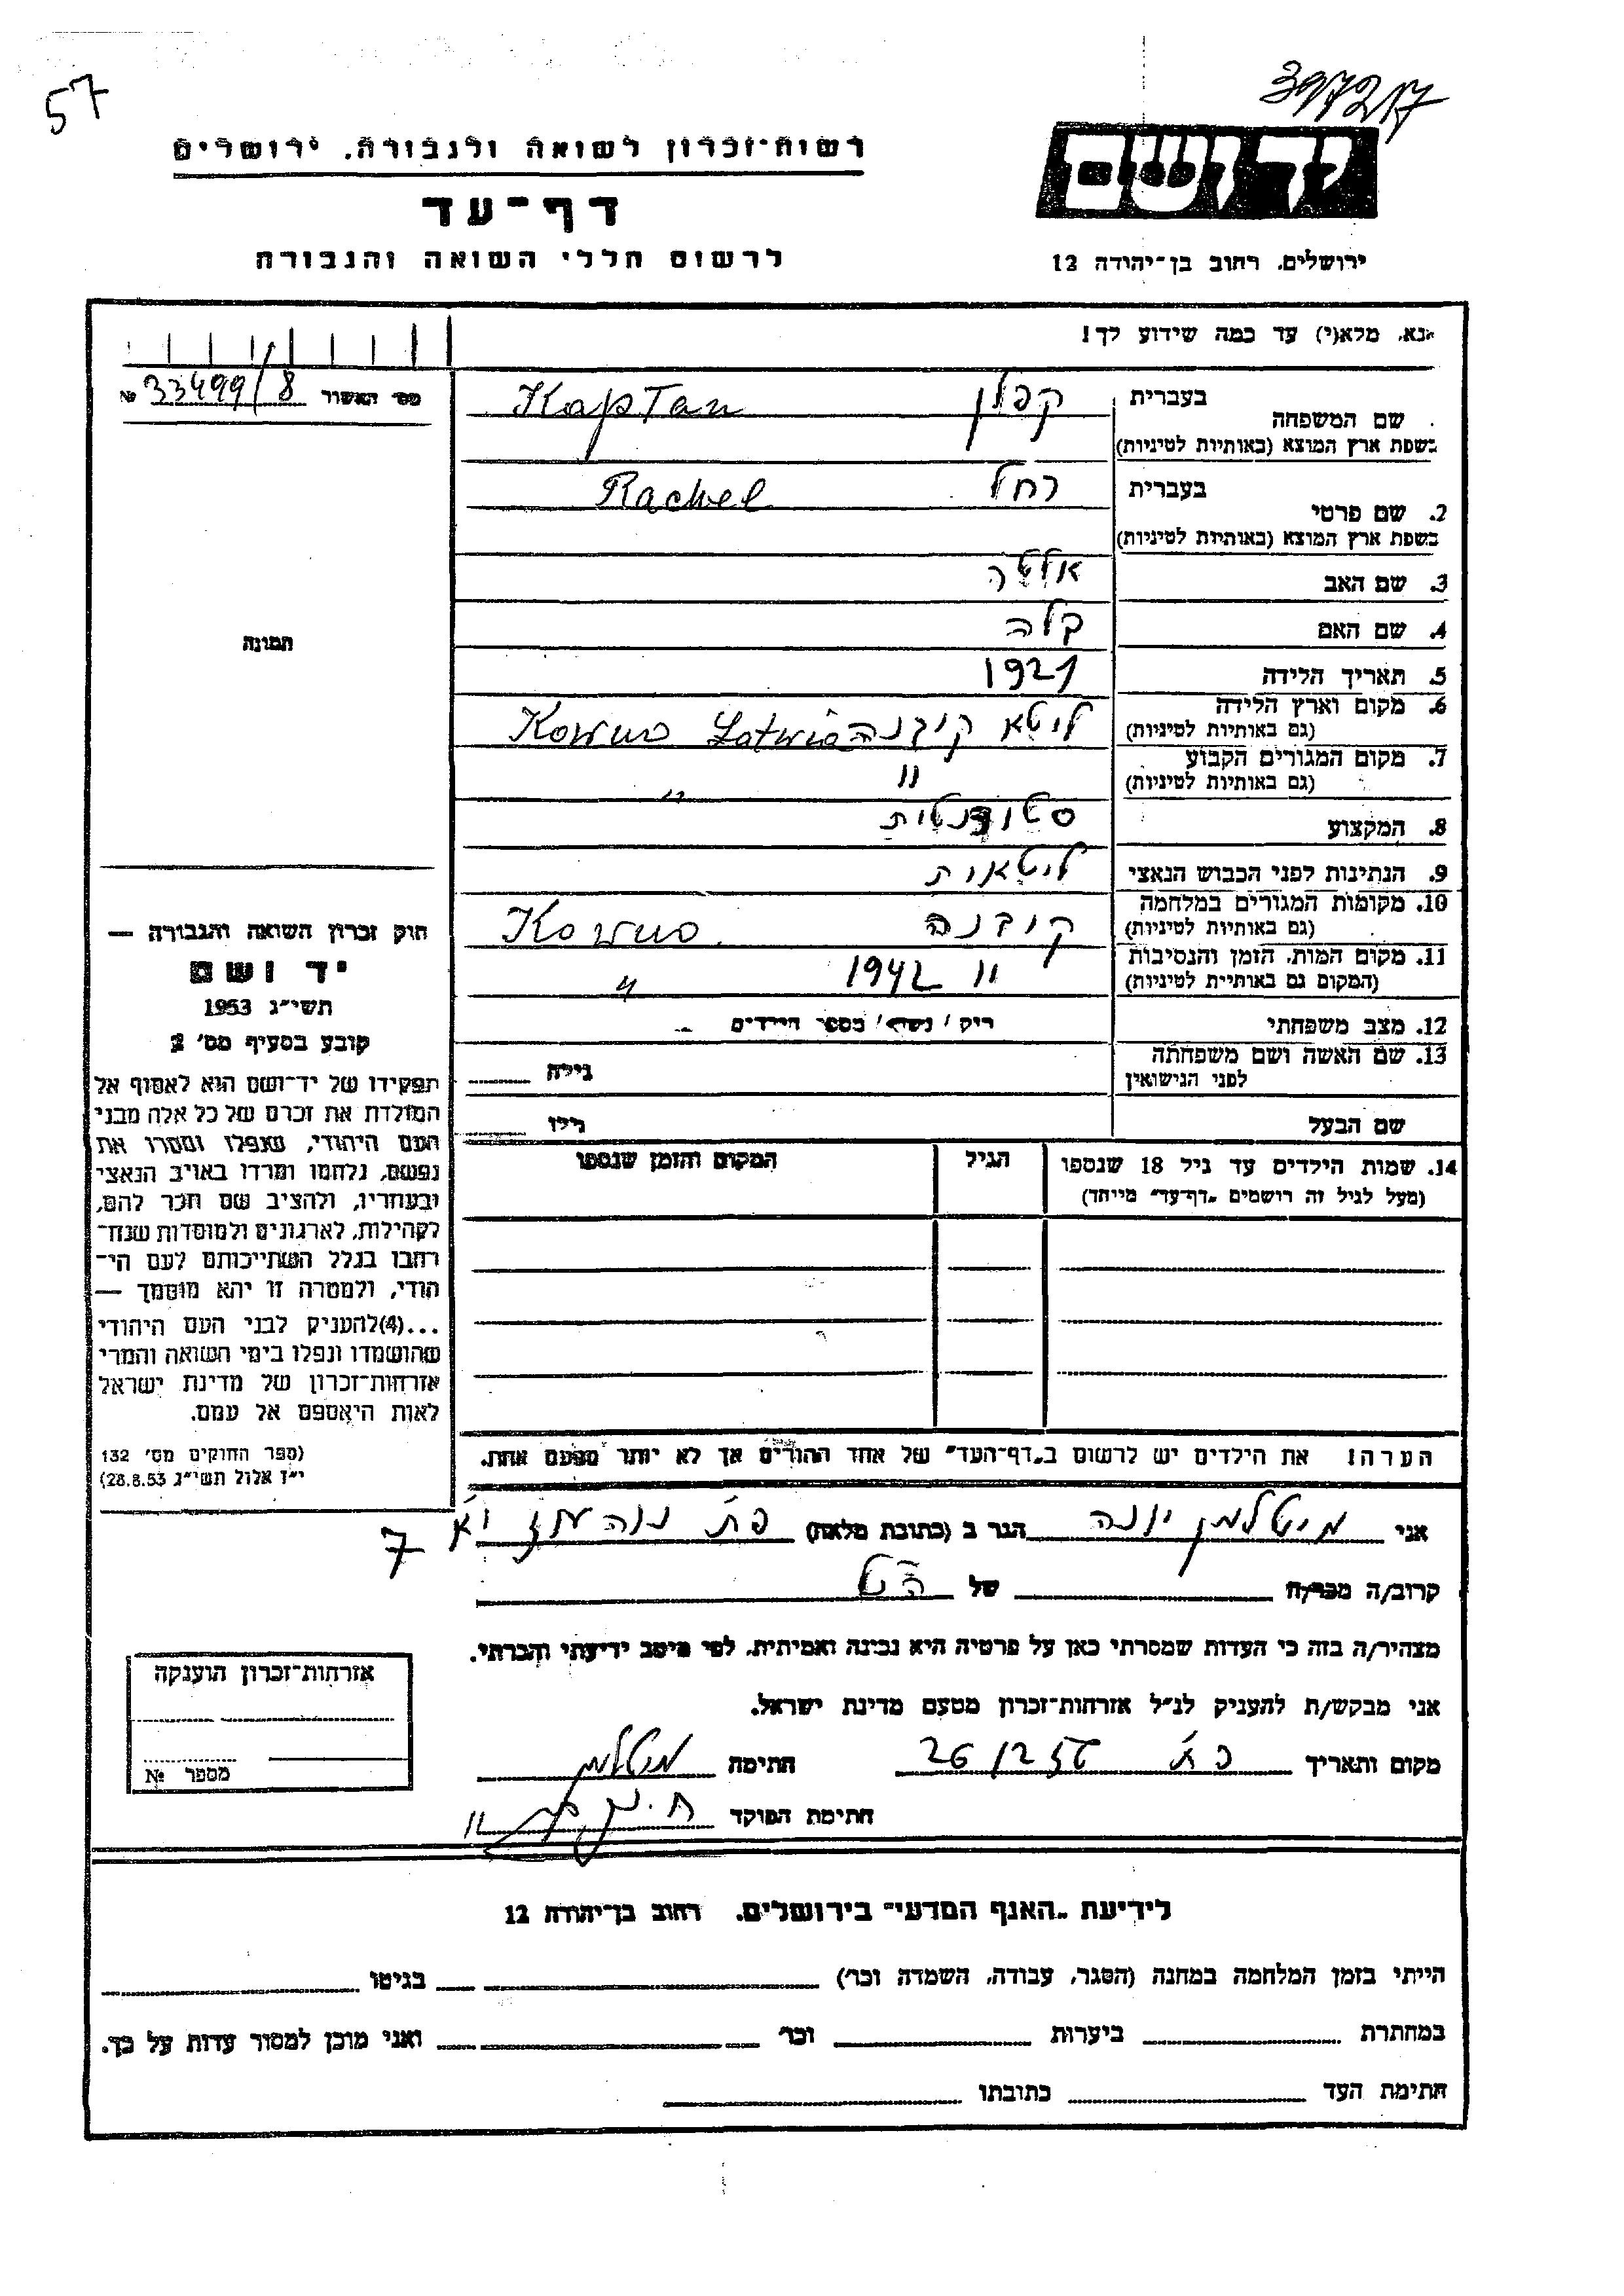 57
397217
רשות-זכרון לשואה ולגבורה, ירושלים
יד ושם
דף-עד
לרשום חללי השואה והגבורה
ירושלים, רחוב בן-יהודה 12
נא, מלא(י) עד כמה שידוע לך!
מס' האשור 33499/8 №
בעברית קפלן Kaplan
שם המשפחה
בשפת ארץ המוצא (באותיות לטיניות)
בעברית רחל Rachel
2. שם פרטי
בשפת ארץ המוצא (באותיות לטיניות)
3. שם האב אלטר
4. שם האם קלה
תמונה
5. תאריך הלידה 1921
6. מקום וארץ הלידה ליטא קובנה Kowno Latwia
(גם באותיות לטיניות)
7. מקום המגורים הקבוע " "
(גם באותיות לטיניות)
8. המקצוע סטודנטית
9. הנתינות לפני הכבוש הנאצי ליטאית
10. מקומות המגורים במלחמה קובנה Kowno
(גם באותיות לטיניות)
11. מקום המות, הזמן והנסיבות " 1942 "
(המקום גם באותיות לטיניות)
12. מצב משפחתי רוק / נשוי / מספר הילדים
13. שם האשה ושם משפחתה גילה
לפני הנישואין
שם הבעל גילו
14. שמות הילדים עד גיל 18 שנספו הגיל המקום והזמן שנספו
(מעל לגיל זה רושמים "דף-עד" מיוחד)
חוק זכרון השואה והגבורה —
יד ושם
תשי"ג 1953
קובע בסעיף מס' 2
תפקידו של יד-ושם הוא לאסוף אל
המולדת את זכרם של כל אלה מבני
העם היהודי, שנפלו ומסרו את
נפשם, נלחמו ומרדו באויב הנאצי
ובעוזריו, ולהציב שם וזכר להם,
לקהילות, לארגונים ולמוסדות שנח-
רבו בגלל השתייכותם לעם הי-
הודי, ולמטרה זו יהא מוסמך —
...(4)להעניק לבני העם היהודי
שהושמדו ונפלו בימי השואה והמרי
אזרחות-זכרון של מדינת ישראל
לאות היאספם אל עמם.
(ספר החוקים מס' 132
י"ז אלול תשי"ג 28.8.53)
הערה! את הילדים יש לרשום ב"דף-העד" של אחד ההורים אך לא יותר מפעם אחת.
אני מיטלמן יונה הגר ב (כתובת מלאה) פ"ת נוה עוז
7
קרוב/ה מכר/ה של
מצהיר/ה בזה כי העדות שמסרתי כאן על פרטיה היא נכונה ואמיתית, לפי מיטב ידיעתי והכרתי.
אני מבקש/ת להעניק לנ"ל אזרחות-זכרון מטעם מדינת ישראל.
מקום ותאריך פ"ת 26/12 חתימה מיטלמן
חתימת הפוקד
אזרחות-זכרון הוענקה
מספר №
לידיעת "האגף המדעי" בירושלים, רחוב בן-יהודה 12
הייתי בזמן המלחמה במחנה (הסגר, עבודה, השמדה וכו') בגיטו
במחתרת ביערות וכו' ואני מוכן למסור עדות על כך.
חתימת העד כתובתו